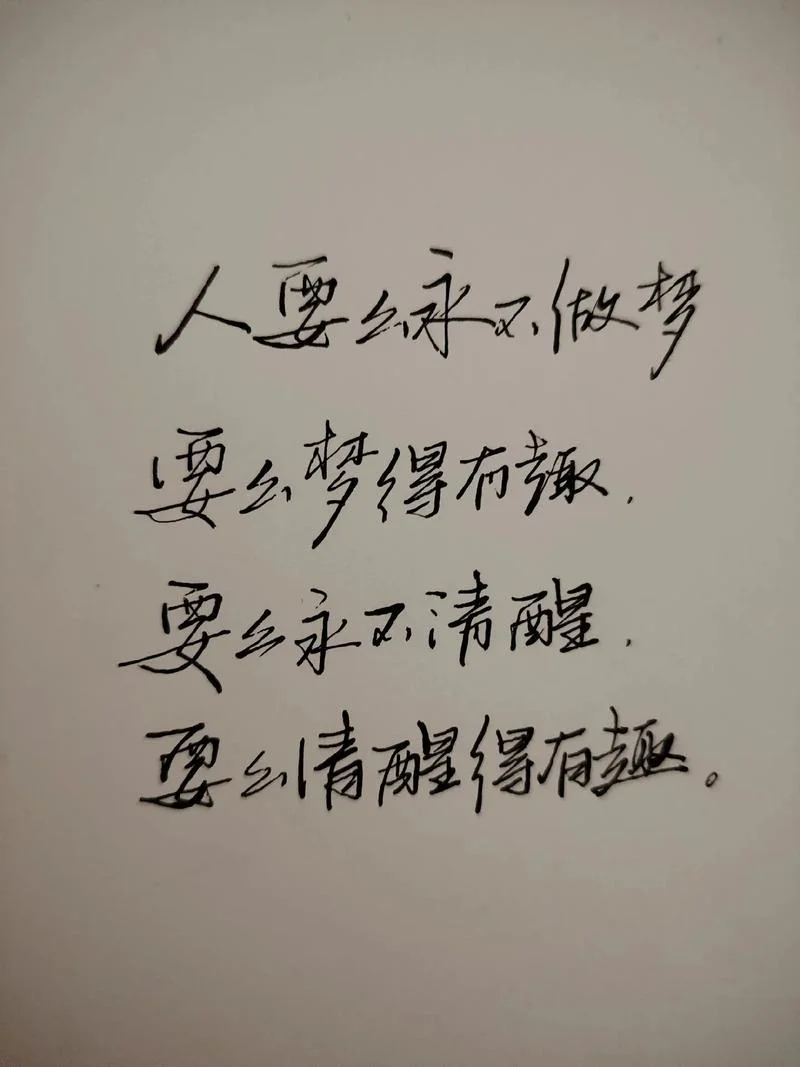 人要么永不做梦
要么梦得有趣，
要么永不清醒，
要么清醒得有趣。